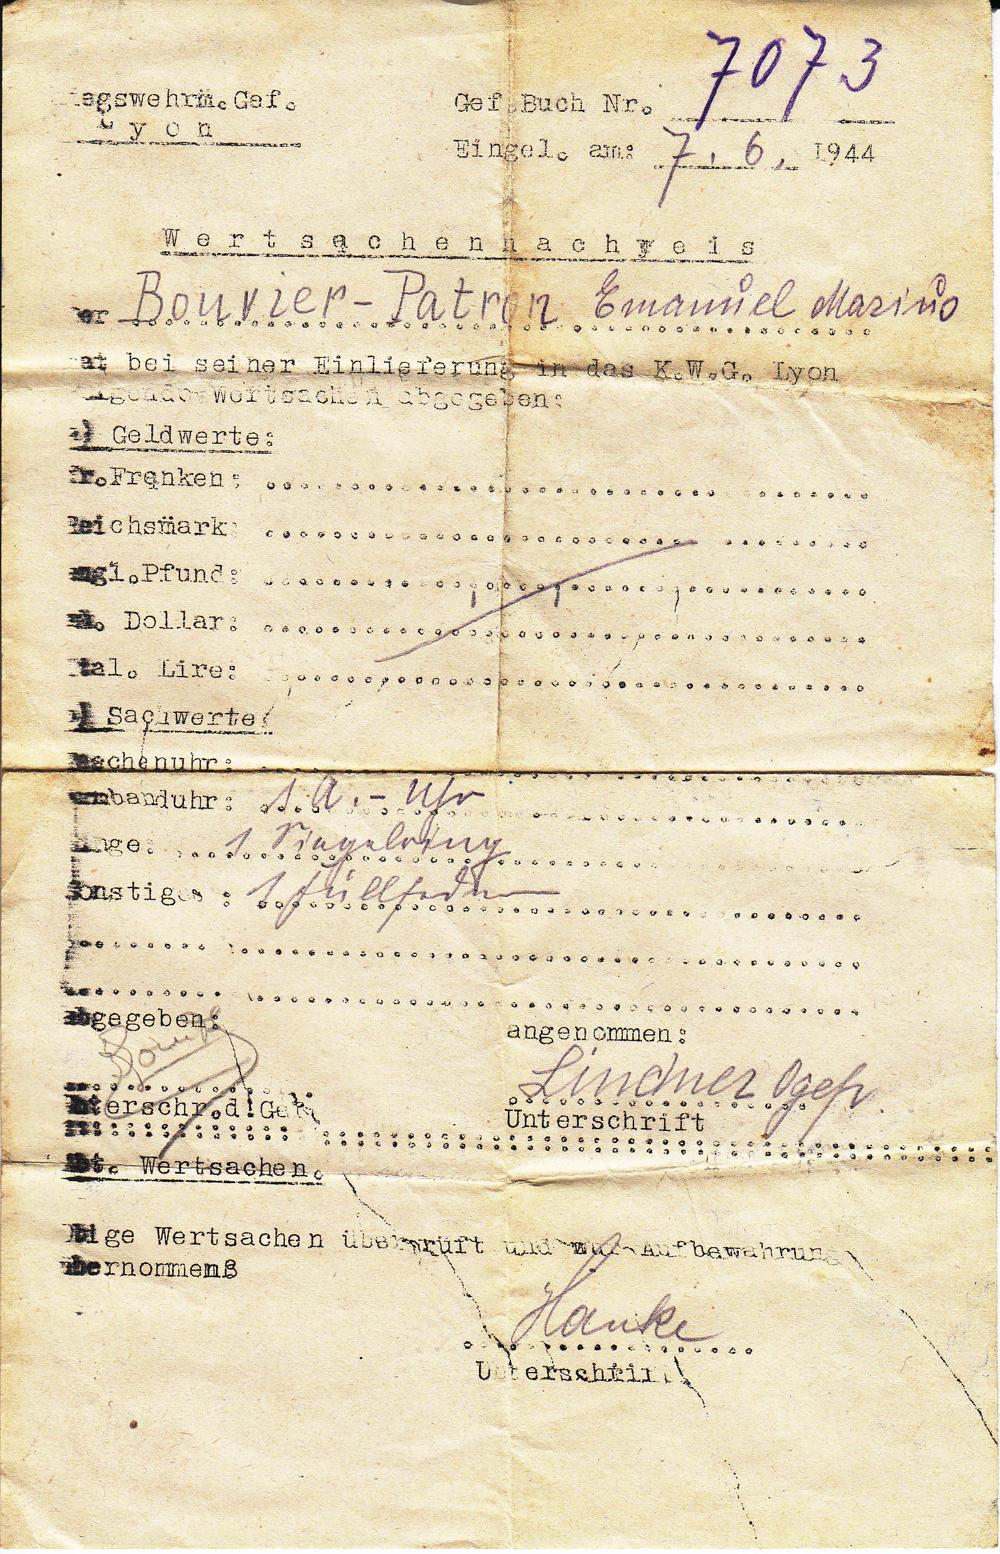 iegswehrm.Gef. Gef.Buch Nr. 7073
Lyon
Eingel. am: 7. 6. 1944
Wertsachennachweis
er Bouvier-Patron Emanuel Marius
at bei seiner Einlieferung in das K.W.G. Lyon
lgende Wertsachen abgegeben:
) Geldwerte:
r.Franken:
eichsmark:
ngl.Pfund:
. Dollar:
tal. Lire:
) Sachwerte:
schenuhr:
mbanduhr: 1 A.-Uhr
inge: 1 Siegelring
onstiges: 1 Füllfeder
bgegeben: angenommen:
Lindner Ogefr.
nterschr.d.Gef. Unterschrift
bt. Wertsachen.
bige Wertsachen überprüft und zur Aufbewahrung
bernommenß
Hanke
Unterschrift